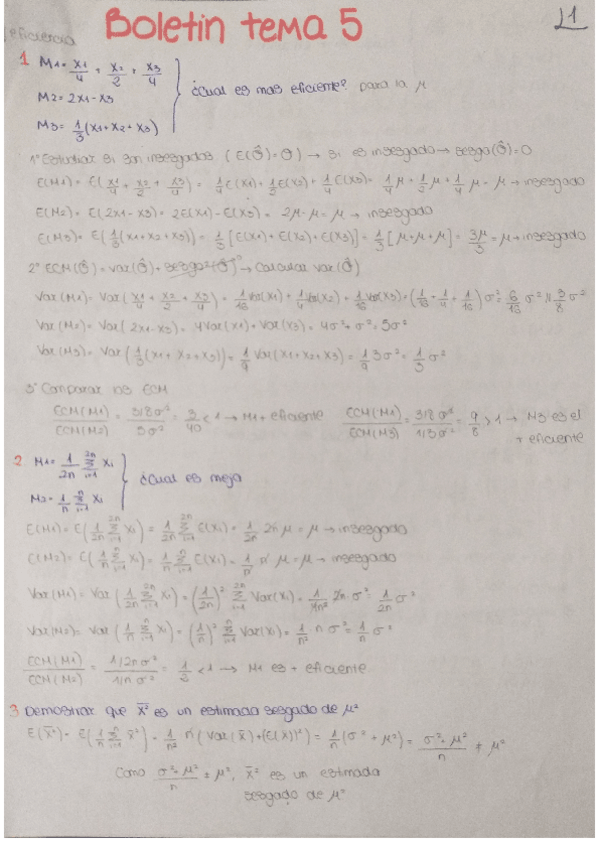 eficiencia
Boletin tema 5
1
1 M1 = x1/4 + x2/2 + x3/4
M2 = 2x1 - x3
M3 = 1/3 (x1 + x2 + x3)
¿Cual es mas eficiente? para la μ
1º Estudiar si son insesgados (E(Ô) = O) → si es insesgado → sesgo(Ô) = 0
E(M1) = E(x1/4 + x2/2 + x3/4) = 1/4 E(x1) + 1/2 E(x2) + 1/4 E(x3) = 1/4 μ + 1/2 μ + 1/4 μ = μ → insesgado
E(M2) = E(2x1 - x3) = 2E(x1) - E(x3) = 2μ - μ = μ → insesgado
E(M3) = E(1/3 (x1 + x2 + x3)) = 1/3 [E(x1) + E(x2) + E(x3)] = 1/3 [μ + μ + μ] = 3μ/3 = μ → insesgado
2º ECM(Ô) = Var(Ô) + sesgo²(Ô)⁰ → Calcular Var(Ô)
Var(M1) = Var(x1/4 + x2/2 + x3/4) = 1/16 Var(x1) + 1/4 Var(x2) + 1/16 Var(x3) = (1/16 + 1/4 + 1/16) σ² = 6/16 σ² = 3/8 σ²
Var(M2) = Var(2x1 - x3) = 4Var(x1) + Var(x3) = 4σ² + σ² = 5σ²
Var(M3) = Var(1/3 (x1 + x2 + x3)) = 1/9 Var(x1 + x2 + x3) = 1/9 3σ² = 1/3 σ²
3º Comparar los ECM
ECM(M1)/ECM(M2) = 3/8σ²/5σ² = 3/40 < 1 → M1 + eficiente ECM(M1)/ECM(M3) = 3/8 σ²/1/3 σ² = 9/8 > 1 → M3 es el
+ eficiente
2 M1 = 1/2n Σ(i=1, 2n) xi
M2 = 1/n Σ(i=1, n) xi
¿Cual es mejo
E(M1) = E(1/2n Σ(i=1, 2n) xi) = 1/2n Σ(i=1, 2n) E(xi) = 1/2n 2n μ = μ → insesgado
E(M2) = E(1/n Σ(i=1, n) xi) = 1/n Σ(i=1, n) E(xi) = 1/n n μ = μ → insesgado
Var(M1) = Var(1/2n Σ(i=1, 2n) xi) = (1/2n)² Σ(i=1, 2n) Var(xi) = 1/4n² 2n · σ² = 1/2n σ²
Var(M2) = Var(1/n Σ(i=1, n) xi) = (1/n)² Σ(i=1, n) Var(xi) = 1/n² n σ² = 1/n σ²
ECM(M1)/ECM(M2) = 1/2n σ²/1/n σ² = 1/2 < 1 → M1 es + eficiente
3 Demostrar que x̄² es un estimado sesgado de μ²
E(x̄²) = E(1/n Σ(i=1, n) x̄²) = 1/n² n (Var(x̄) + (E(x̄))²) = 1/n (σ² + μ²) = σ² + μ²/n ≠ μ²
Como σ² + μ²/n ≠ μ², x̄² es un estimada
sesgado de μ²